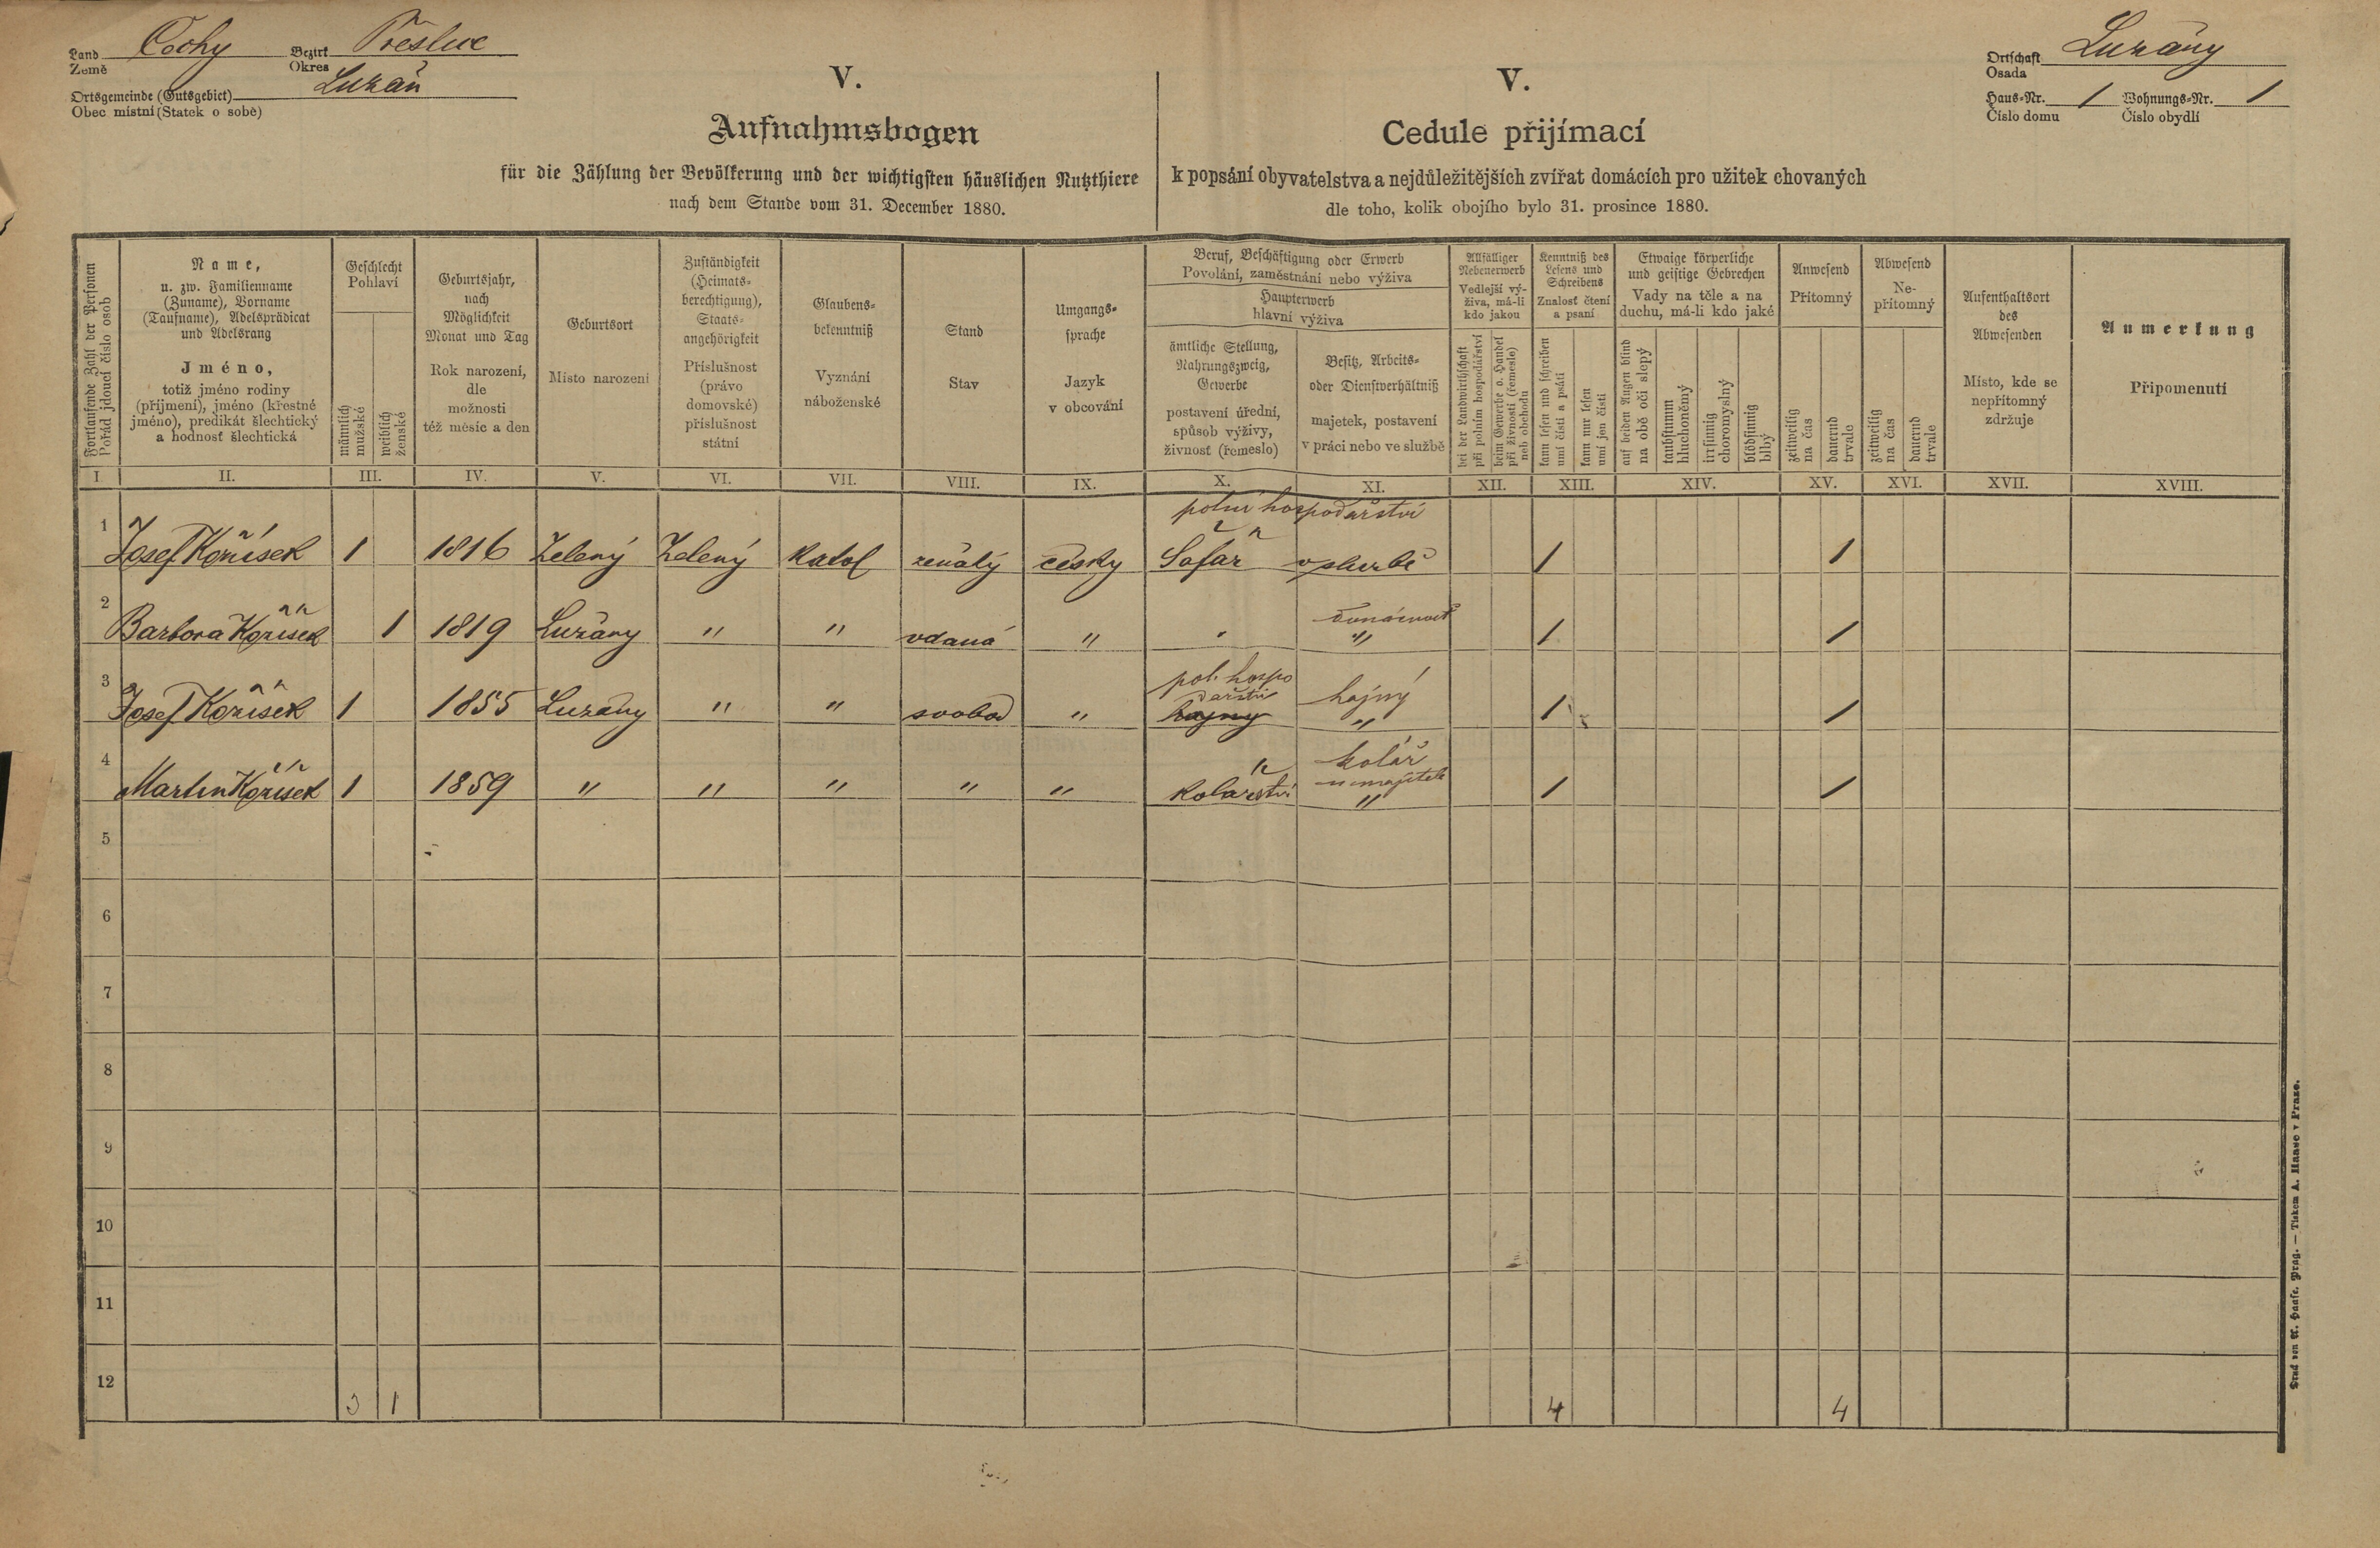 Land Čechy Bezirk Přelouč
Země Okres
Ortsgemeinde (Gutsgebiet) Lužan
Obec místní (Statek o sobě)
V.
Aufnahmsbogen
für die Zählung der Bevölkerung und der wichtigsten häuslichen Nutzthiere
nach dem Stande vom 31. December 1880.
V.
Cedule přijímací
k popsání obyvatelstva a nejdůležitějších zvířat domácích pro užitek chovaných
dle toho, kolik obojího bylo 31. prosince 1880.
Ortschaft Lužany
Osada
Haus-Nr. 1 Wohnungs-Nr. 1
Číslo domu Číslo obydlí
Fortlaufende Zahl der Personen
Pořád jdoucí číslo osob
Name,
u. zw. Familienname
(Zuname), Vorname
(Taufname), Adelsprädicat
und Adelsrang
Jméno,
totiž jméno rodiny
(příjmení), jméno (křestné
jméno), predikát šlechtický
a hodnosť šlechtická
Geschlecht
Pohlaví
männlich
mužské
weiblich
ženské
Geburtsjahr,
nach
Möglichkeit
Monat und Tag
Rok narození,
dle
možnosti
též měsíc a den
Geburtsort
Místo narození
Zuständigkeit
(Heimats-
berechtigung),
Staats-
angehörigkeit
Příslušnost
(právo
domovské)
příslušnost
státní
Glaubens-
bekenntniß
Vyznání
náboženské
Stand
Stav
Umgangs-
sprache
Jazyk
v obcování
Beruf, Beschäftigung oder Erwerb
Povolání, zaměstnání nebo výživa
Haupterwerb
hlavní výživa
ämtliche Stellung,
Nahrungszweig,
Gewerbe
postavení úřední,
spůsob výživy,
živnosť (řemeslo)
Besitz, Arbeits-
oder Dienstverhältniß
majetek, postavení
v práci nebo ve službě
Allfälliger
Nebenerwerb
Vedlejší vý-
živa, má-li
kdo jakou
bei der Landwirthschaft
při polním hospodářství
beim Gewerbe o. Handel
při živnosti (řemesle)
neb obchodu
Kenntniß des
Lesens und
Schreibens
Znalosť čtení
a psaní
kann lesen und schreiben
umí čísti a psáti
kann nur lesen
umí jen čísti
Etwaige körperliche
und geistige Gebrechen
Vady na těle a na
duchu, má-li kdo jaké
auf beiden Augen blind
na obě oči slepý
taubstumm
hluchoněmý
irrsinnig
choromyslný
blödsinnig
blbý
Anwesend
Přítomný
zeitweilig
na čas
dauernd
trvale
Abwesend
Ne-
přítomný
zeitweilig
na čas
dauernd
trvale
Aufenthaltsort
des
Abwesenden
Místo, kde se
nepřítomný
zdržuje
Anmerkung
Připomenutí
I. II. III. IV. V. VI. VII. VIII. IX. X. XI. XII. XIII. XIV. XV. XVI. XVII. XVIII.
polní hospodářství
1 Josef Kořísek 1 1816 Zelený Zelený katol ženatý česky Šafář v službě 1 1
domácnost
2 Barbora Kořísek 1 1819 Lužany " " vdaná " " " 1 1
pol. hospo
dařství hajný
3 Josef Kořísek 1 1855 Lužany " " svobod " hajný " 1 1
kolář
u majitele
4 Martin Kořísek 1 1859 " " " " " kolářství " 1 1
5
6
7
8
9
10
11
12
3 1 4 4
Druck von A. Haase, Prag. — Tiskem A. Haase v Praze.